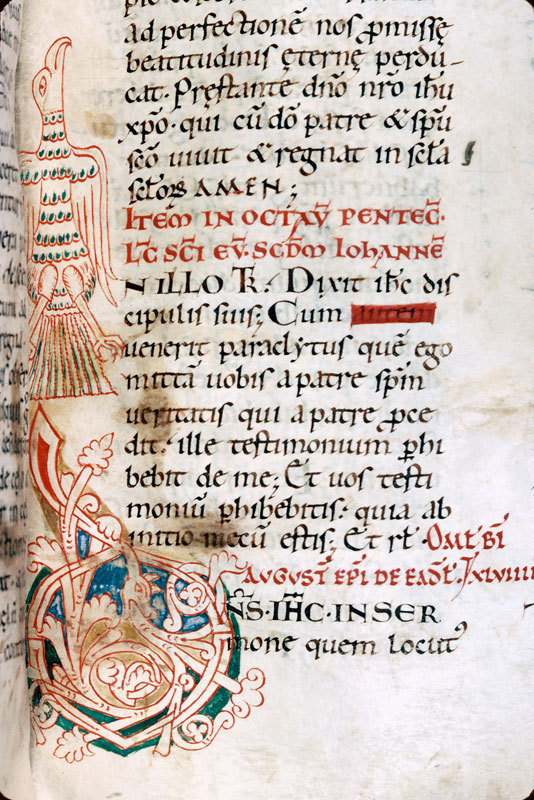 ad perfectionē nos p̄missę
beatitudinis ęternę perdu-
cat. Pręstante dn̄o nr̄o ih̄u
xp̄o. qui cū dō patre & sp̄u
sc̄o uiuit & regnat in sc̄la
sc̄lorꝝ AMEN;
ITEM IN OCTAV̄ PENTEC̄.
L̄C SC̄I EV̄. SCD̄M IOHANNĒ
N ILLO T̄R. Dixit ih̄c dis
cipulis suis; Cum autem
uenerit paraclytus quē ego
mittā uobis a patre sp̄m
ueritatis qui a patre p̄ce
dit. ille testimonium p̄hi
bebit de me; Et uos testi
moniū p̄hibebitis. quia ab
initio mecū estis; Et rł. OMŁ. BĪ
AUGUST̄ EP̄I DE EADŁ. Jxlviiii
N̄S. IH̄C. IN SER
mone quem locut᾿